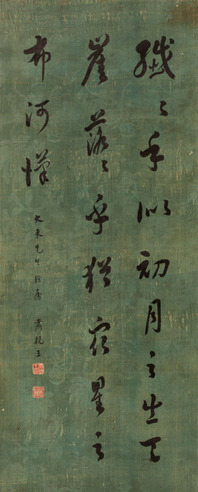 纖〻乎似初月之出天
崖落〻乎猶衆星之
布河漢
先生